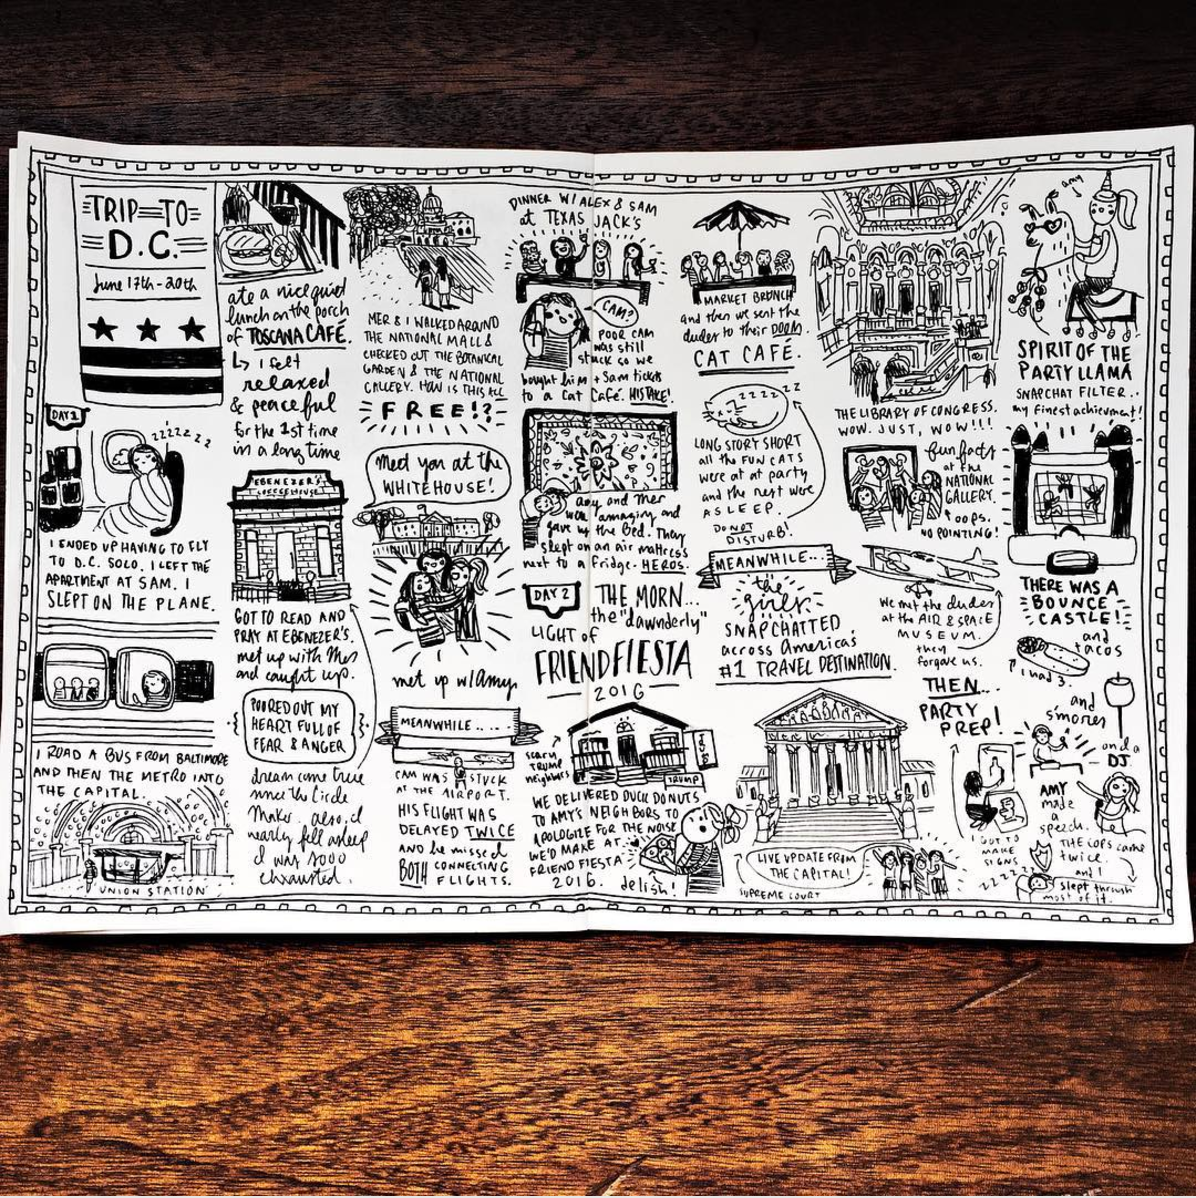 TRIP TO
D.C.
June 17th - 20th
DAY 1
zzzzzzz
I ENDED UP HAVING TO FLY
TO D.C. SOLO. I LEFT THE
APARTMENT AT 5AM. I
SLEPT ON THE PLANE.
I ROAD A BUS FROM BALTIMORE
AND THEN THE METRO INTO
THE CAPITAL.
UNION STATION
ate a nice quiet
lunch on the porch
of TOSCANA CAFÉ.
↳ I felt
relaxed
& peaceful
for the 1st time
in a long time
EBENEZER'S
COFFEEHOUSE
GOT TO READ AND
PRAY AT EBENEZER'S.
met up with Mer
and caught up.
POURED OUT MY
HEART FULL OF
FEAR & ANGER
dream come true
since the Circle
Maker. also, I
nearly fell asleep
I was sooo
exhausted.
MER & I WALKED AROUND
THE NATIONAL MALL &
CHECKED OUT THE BOTANICAL
GARDEN & THE NATIONAL
GALLERY. HOW IS THIS ALL
FREE!?
Meet you at the
WHITEHOUSE!
met up w/ amy.
MEANWHILE.....
CAM WAS STUCK
AT THE AIRPORT.
HIS FLIGHT WAS
DELAYED TWICE
AND he missed
BOTH CONNECTING
FLIGHTS.
DINNER W/ ALEX & SAM
at TEXAS JACK'S
CAM?
POOR CAM
was still
stuck so we
bought him + Sam tickets
to a Cat Café. HIS FAVE!
amy and mer
were amazing and
gave up the Bed. They
slept on an air mattress
next to a fridge. HEROS.
DAY 2
THE MORN...
the "dawnderly"
LIGHT of
FRIENDFIESTA
2016
scary
TRUMP
neighbors
TRUMP
WE DELIVERED DUCK DONUTS
TO AMY'S NEIGHBORS TO
APOLOGIZE FOR THE NOISE
WE'D MAKE AT
FRIEND FIESTA
2016.
delish!
MARKET BRUNCH
and then we sent the
dudes to their DOOM
CAT CAFÉ.
zzzzz
LONG STORY SHORT
all the FUN CATS
were at at party
and the rest were
ASLEEP.
DO NOT
DISTURB!
MEANWHILE...
the
girls
SNAPCHATTED
across America's
#1 TRAVEL DESTINATION.
LIVE UPDATE FROM
THE CAPITAL!
SUPREME COURT
THE LIBRARY OF CONGRESS.
WOW. JUST, WOW!!!!
fun facts
at the
NATIONAL
GALLERY.
oops.
NO POINTING!
We met the dudes
at the AIR & SPACE
MUSEUM.
they
forgave us.
THEN...
PARTY
PREP!
I GOT TO
MAKE
SIGNS
amy
SPIRIT OF THE
PARTY LLAMA
SNAPCHAT FILTER..
my finest achievement!
THERE WAS A
BOUNCE
CASTLE!
and
tacos
I had 3.
and
s'mores
and a
DJ
AMY
made
a
speech.
THE COPS came
twice.
and I
slept through
most of it.
zzzzzz